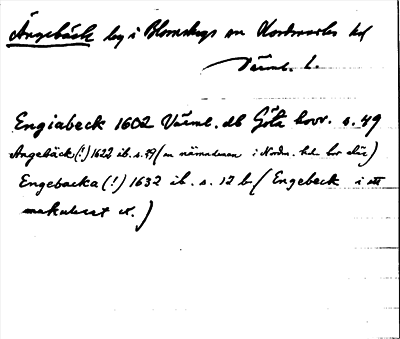 Ängebäck by i Blomskogs sn Nordmarks hd
Värml. l.
Engiabeck 1602 Värml. db Göta hovr. s. 49
Angebäck (!) 1622 ib. s. 49 (en nämndeman i Nordm. hd bor där)
Engebacka (!) 1632 ib. s. 12 b (Engebeck i ett
makulerat st.)